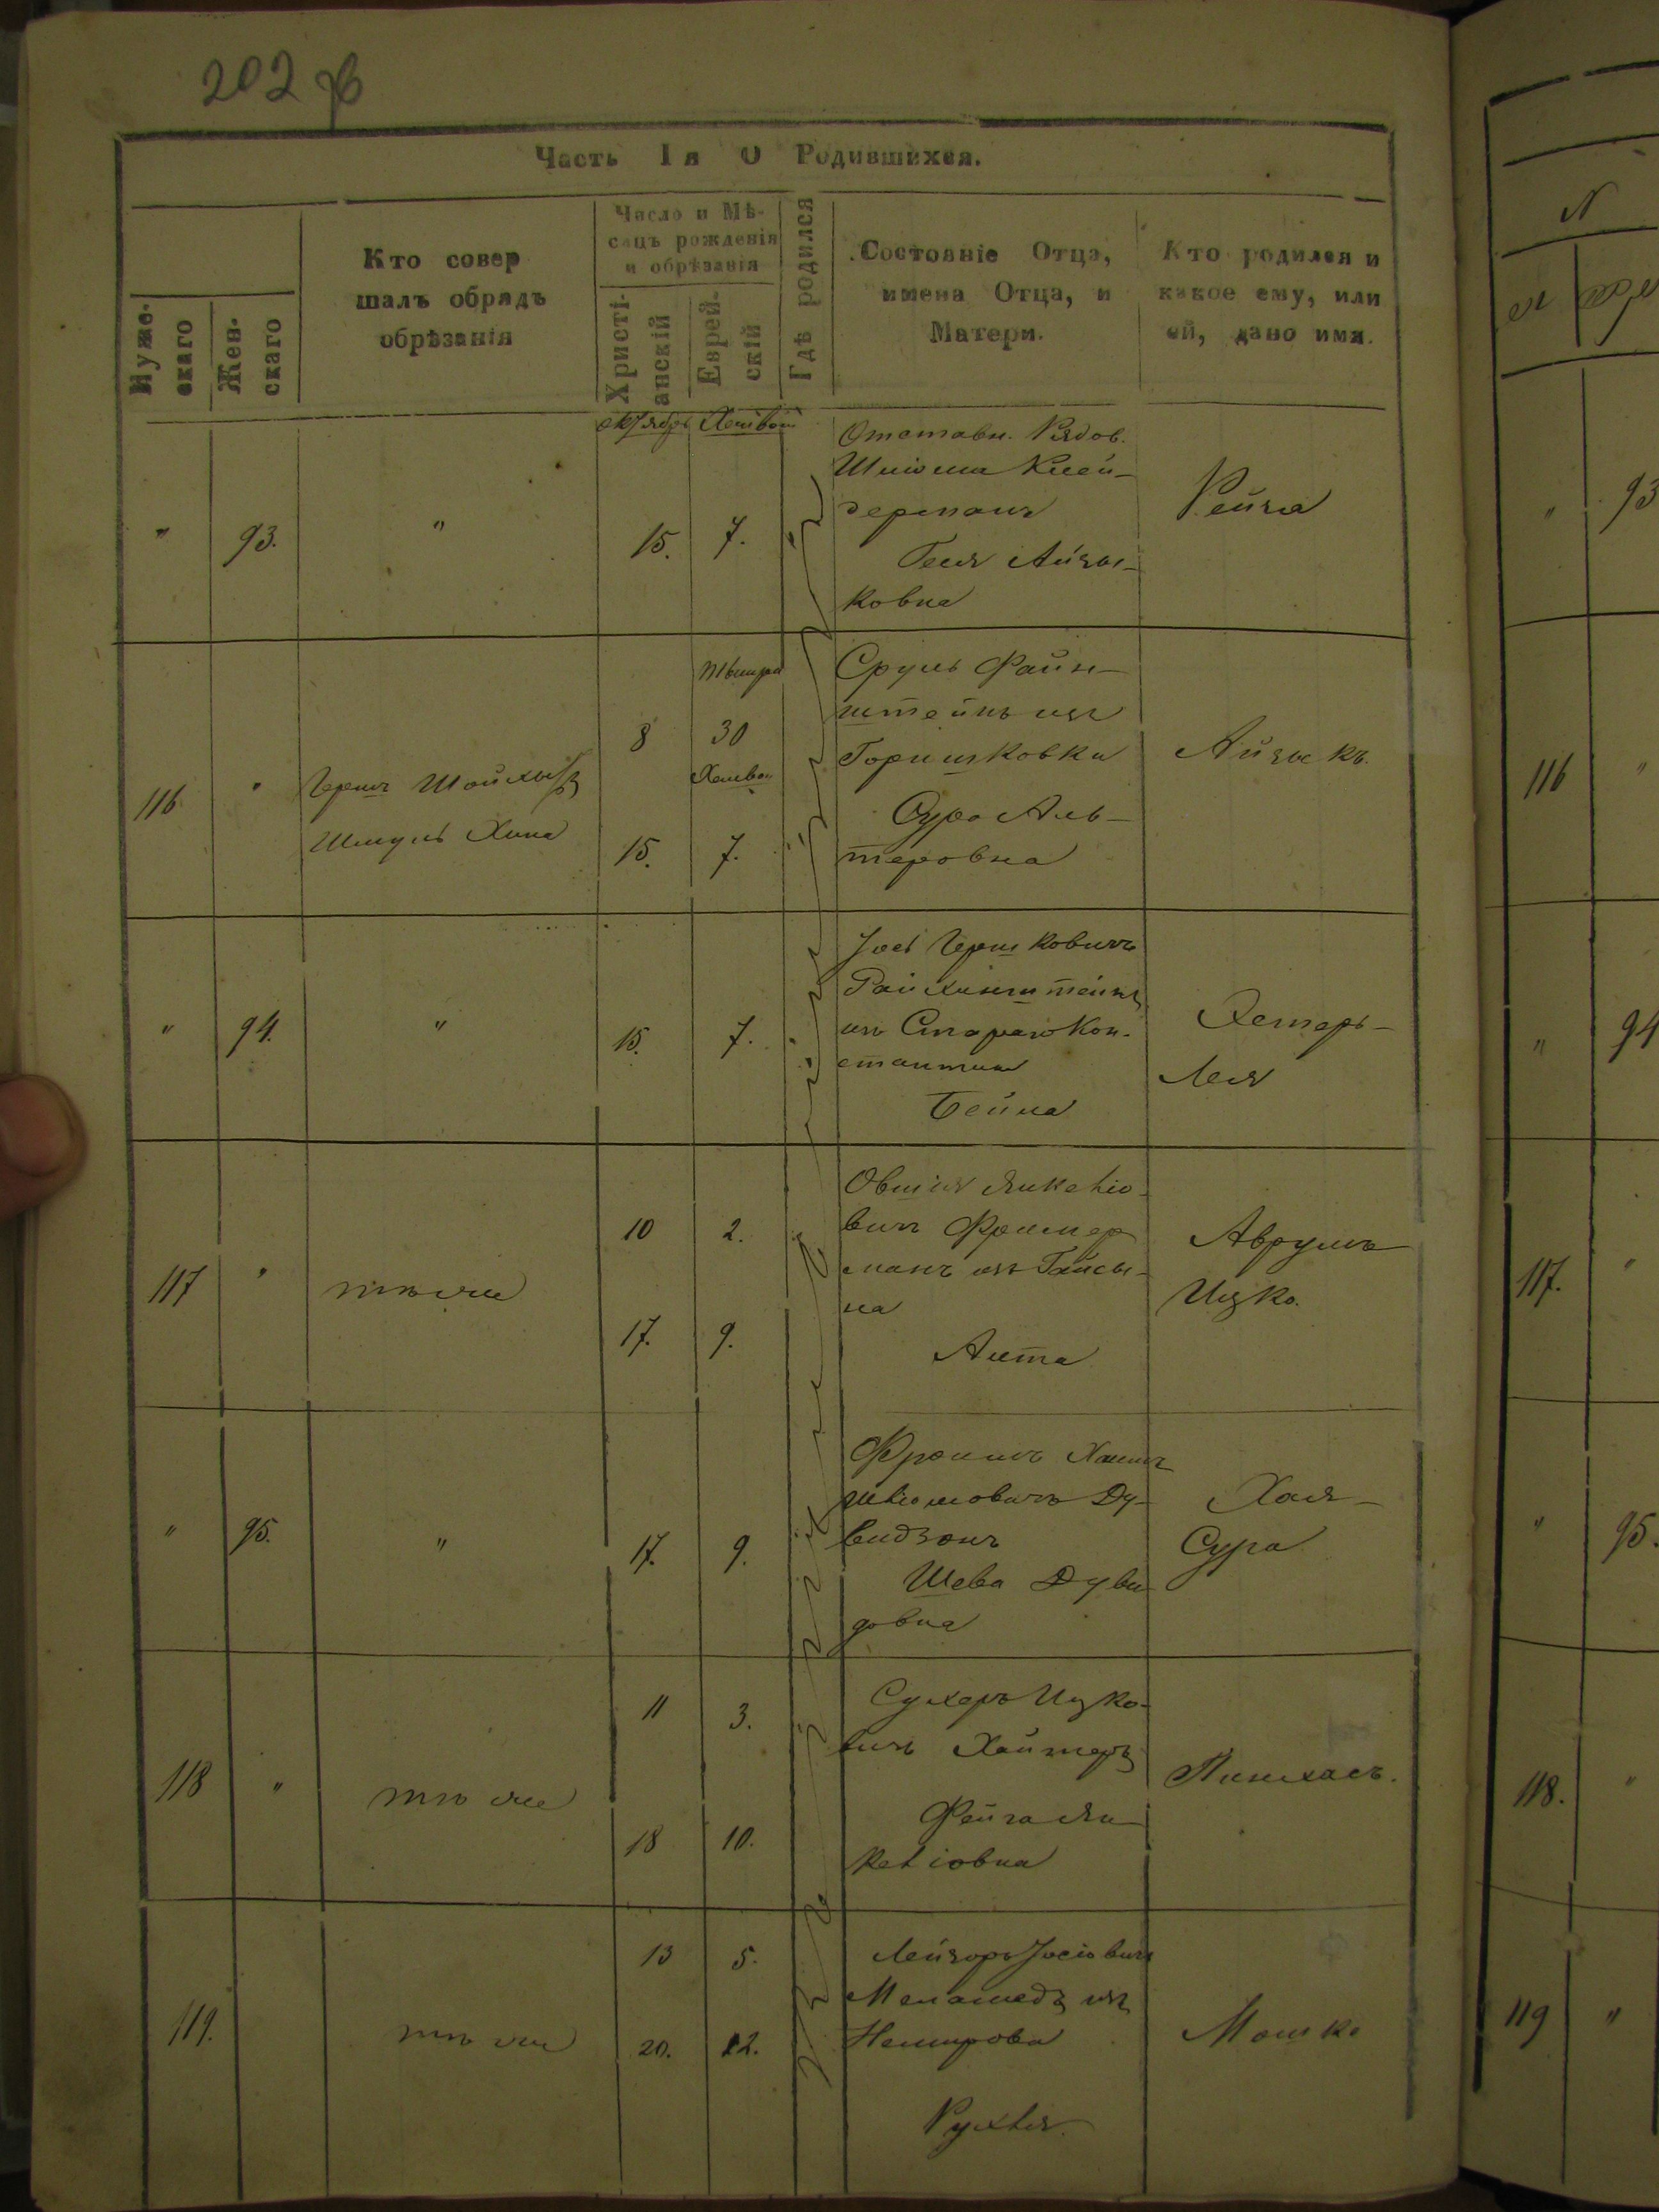 202 об
Часть Iя О Родившихся.
Мужескаго
Женскаго
Кто совер
шалъ обрядъ
обрѣзанія
Число и Мѣ-
сяцъ рожденія
и обрѣзанія
Христі-
анскій
Еврей-
скій
Гдѣ родился
Состояніе Отца,
имена Отца, и
Матери.
Кто родился и
какое ему, или
ей, дано имя.
октябрь Хешвон
" 93. " 15. 7.
Отставн. Рядов.
Шліома Клей-
дерманъ
Геня Айзы-
ковна
Рейза
116 "
Гершъ Шойхы
Шмуль Хина
Тишри
8 30
Хешвон
15. 7.
Сруль Файн-
штейнъ изъ
Горишковки
Сура Аль-
теровна
Айзыкъ.
" 94. " 15. 7.
Іось Гершковичъ
Райхинштейнъ
изъ Старако Кон-
стантин
Бейла
Эстеръ-
Лея
117 " тѣ же
10 2.
17. 9.
Овшія
вичъ
манъ изъ Гайсы-
на
Аврумъ
Ицко.
" 95. " 17. 9.
Фроимъ Хаимъ
Шліомовичъ Ду-
видзонъ
Шева Дуви
довна
Хая-
Сура
118 " тѣ же
11 3.
18 10.
Сухеръ Ицко-
вичъ
Фейга Ян
келіовна
Пинхасъ.
119. тѣ же
13 5.
20. 12.
Лейзоръ Іосіовичъ
изъ
Немирова
Рухля
Мошко
93
116 "
" 94
117. "
" 95.
118. "
119 "